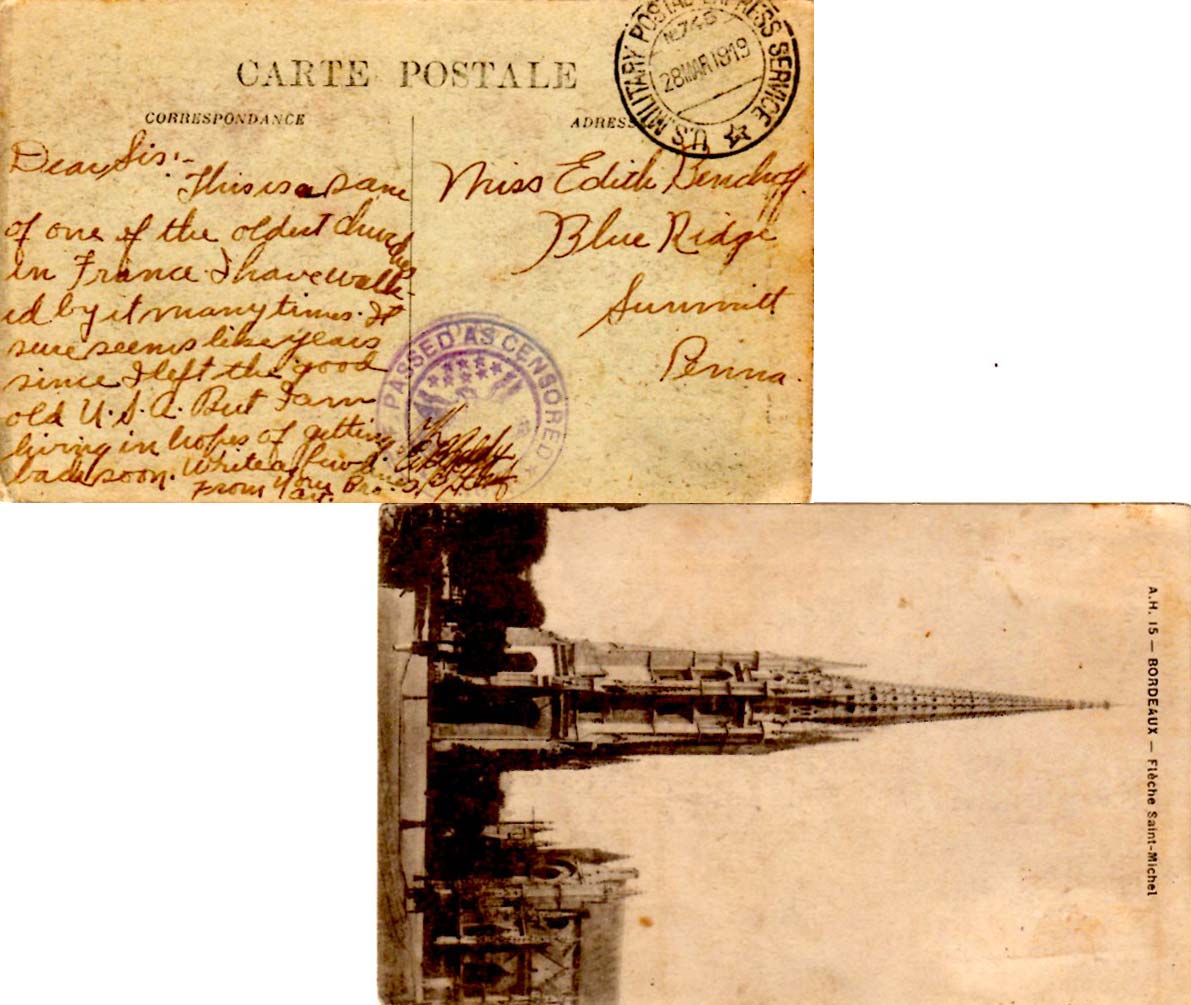 CARTE POSTALE
CORRESPONDANCE
ADRESS
U.S. MILITARY POSTAL EXPRESS SERVICE
No 745
28 MAR 1919
Dear Sis:-
This is a
of one of the oldest churches
in France. I have walk-
ed by it many times. It
sure seems like years
since I left the good
old U.S.A. But I am
living in hopes of getting
back soon. Write a few lines
From Your Bro.
Art.
Miss Edith Benchoff.
Blue Ridge
Summitt
Penna.
PASSED AS CENSORED
A.H. 15 — BORDEAUX — Flèche Saint-Michel